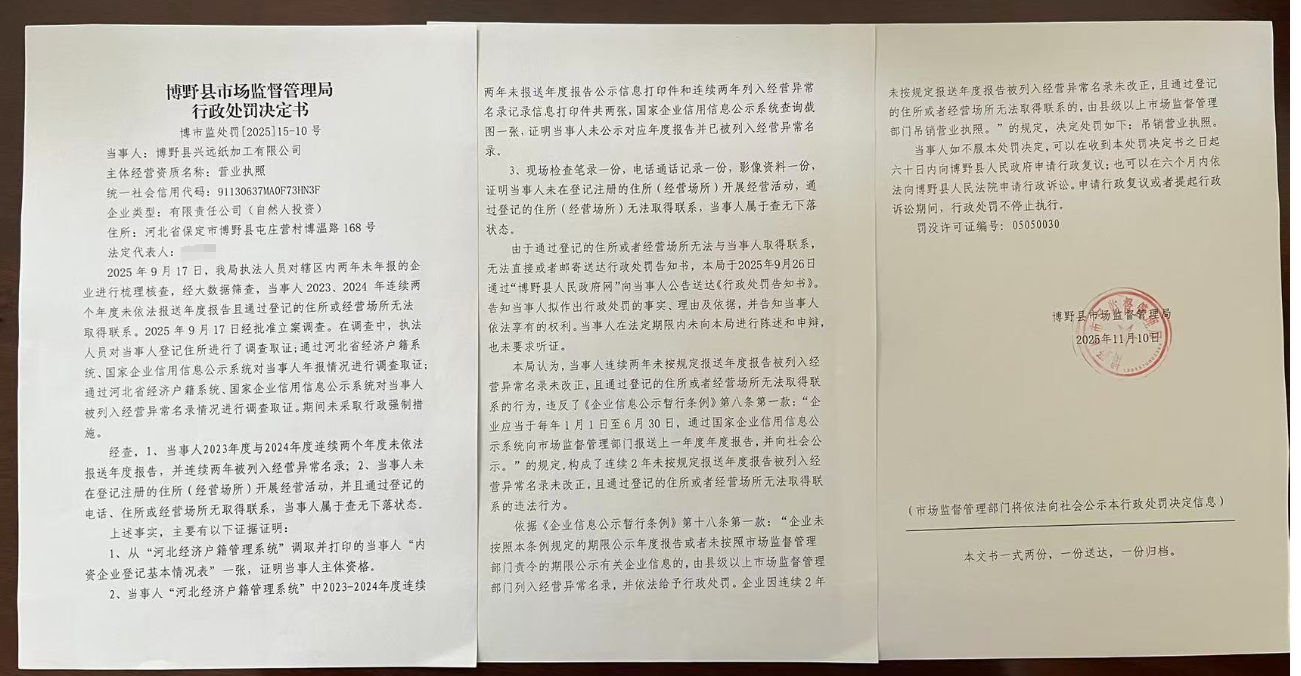 博野县市场监督管理局
行政处罚决定书
博市监处罚[2025]15-10 号
当事人：博野县兴远纸加工有限公司
主体经营资质名称：营业执照
统一社会信用代码：91130637MA0F73HN3F
企业类型：有限责任公司（自然人投资）
住所：河北省保定市博野县屯庄营村博温路 168 号
法定代表人：
2025 年 9 月 17 日，我局执法人员对辖区内两年未年报的企
业进行梳理核查，经大数据筛查，当事人 2023、2024 年连续两
个年度未依法报送年度报告且通过登记的住所或经营场所无法
取得联系。2025 年 9 月 17 日经批准立案调查。在调查中，执法
人员对当事人登记住所进行了调查取证；通过河北省经济户籍系
统、国家企业信用信息公示系统对当事人年报情况进行调查取证；
通过河北省经济户籍系统、国家企业信用信息公示系统对当事人
被列入经营异常名录情况进行调查取证。期间未采取行政强制措
施。
经查，1、当事人2023年度与2024年度连续两个年度未依法
报送年度报告，并连续两年被列入经营异常名录；2、当事人未
在登记注册的住所（经营场所）开展经营活动，并且通过登记的
电话、住所或经营场所无取得联系，当事人属于查无下落状态。
上述事实，主要有以下证据证明：
1、从“河北经济户籍管理系统”调取并打印的当事人“内
资企业登记基本情况表”一张，证明当事人主体资格。
2、当事人“河北经济户籍管理系统”中2023-2024年度连续
两年未报送年度报告公示信息打印件和连续两年列入经营异常
名录记录信息打印件共两张，国家企业信用信息公示系统查询截
图一张，证明当事人未公示对应年度报告并已被列入经营异常名
录、
3、现场检查笔录一份，电话通话记录一份，影像资料一份，
证明当事人未在登记注册的住所（经营场所）开展经营活动，通
过登记的住所（经营场所）无法取得联系，当事人属于查无下落
状态。
由于通过登记的住所或者经营场所无法与当事人取得联系，
无法直接或者邮寄送达行政处罚告知书，本局于2025年9月26日
通过“博野县人民政府网”向当事人公告送达《行政处罚告知书》。
告知当事人拟作出行政处罚的事实、理由及依据，并告知当事人
依法享有的权利。当事人在法定期限内未向本局进行陈述和申辩，
也未要求听证。
本局认为，当事人连续两年未按规定报送年度报告被列入经
营异常名录未改正，且通过登记的住所或者经营场所无法取得联
系的行为，违反了《企业信息公示暂行条例》第八条第一款：“企
业应当于每年 1 月 1 日至 6 月 30 日，通过国家企业信用信息公
示系统向市场监督管理部门报送上一年度年度报告，并向社会公
示。”的规定，构成了连续 2 年未按规定报送年度报告被列入经
营异常名录未改正，且通过登记的住所或者经营场所无法取得联系
的违法行为。
依据《企业信息公示暂行条例》第十八条第一款：“企业未
按照本条例规定的期限公示年度报告或者未按照市场监督管理
部门责令的期限公示有关企业信息的，由县级以上市场监督管理
部门列入经营异常名录，并依法给予行政处罚。企业因连续 2 年
未按规定报送年度报告被列入经营异常名录未改正，且通过登记
的住所或者经营场所无法取得联系的，由县级以上市场监督管理
部门吊销营业执照。”的规定，决定处罚如下：吊销营业执照。
当事人如不服本处罚决定，可以在收到本处罚决定书之日起
六十日内向博野县人民政府申请行政复议；也可以在六个月内依
法向博野县人民法院申请行政诉讼。申请行政复议或者提起行政
诉讼期间，行政处罚不停止执行。
罚没许可证编号：05050030
博野县市场监督管理局
2025年11月10日
（市场监督管理部门将依法向社会公示本行政处罚决定信息）
本文书一式两份，一份送达，一份归档。